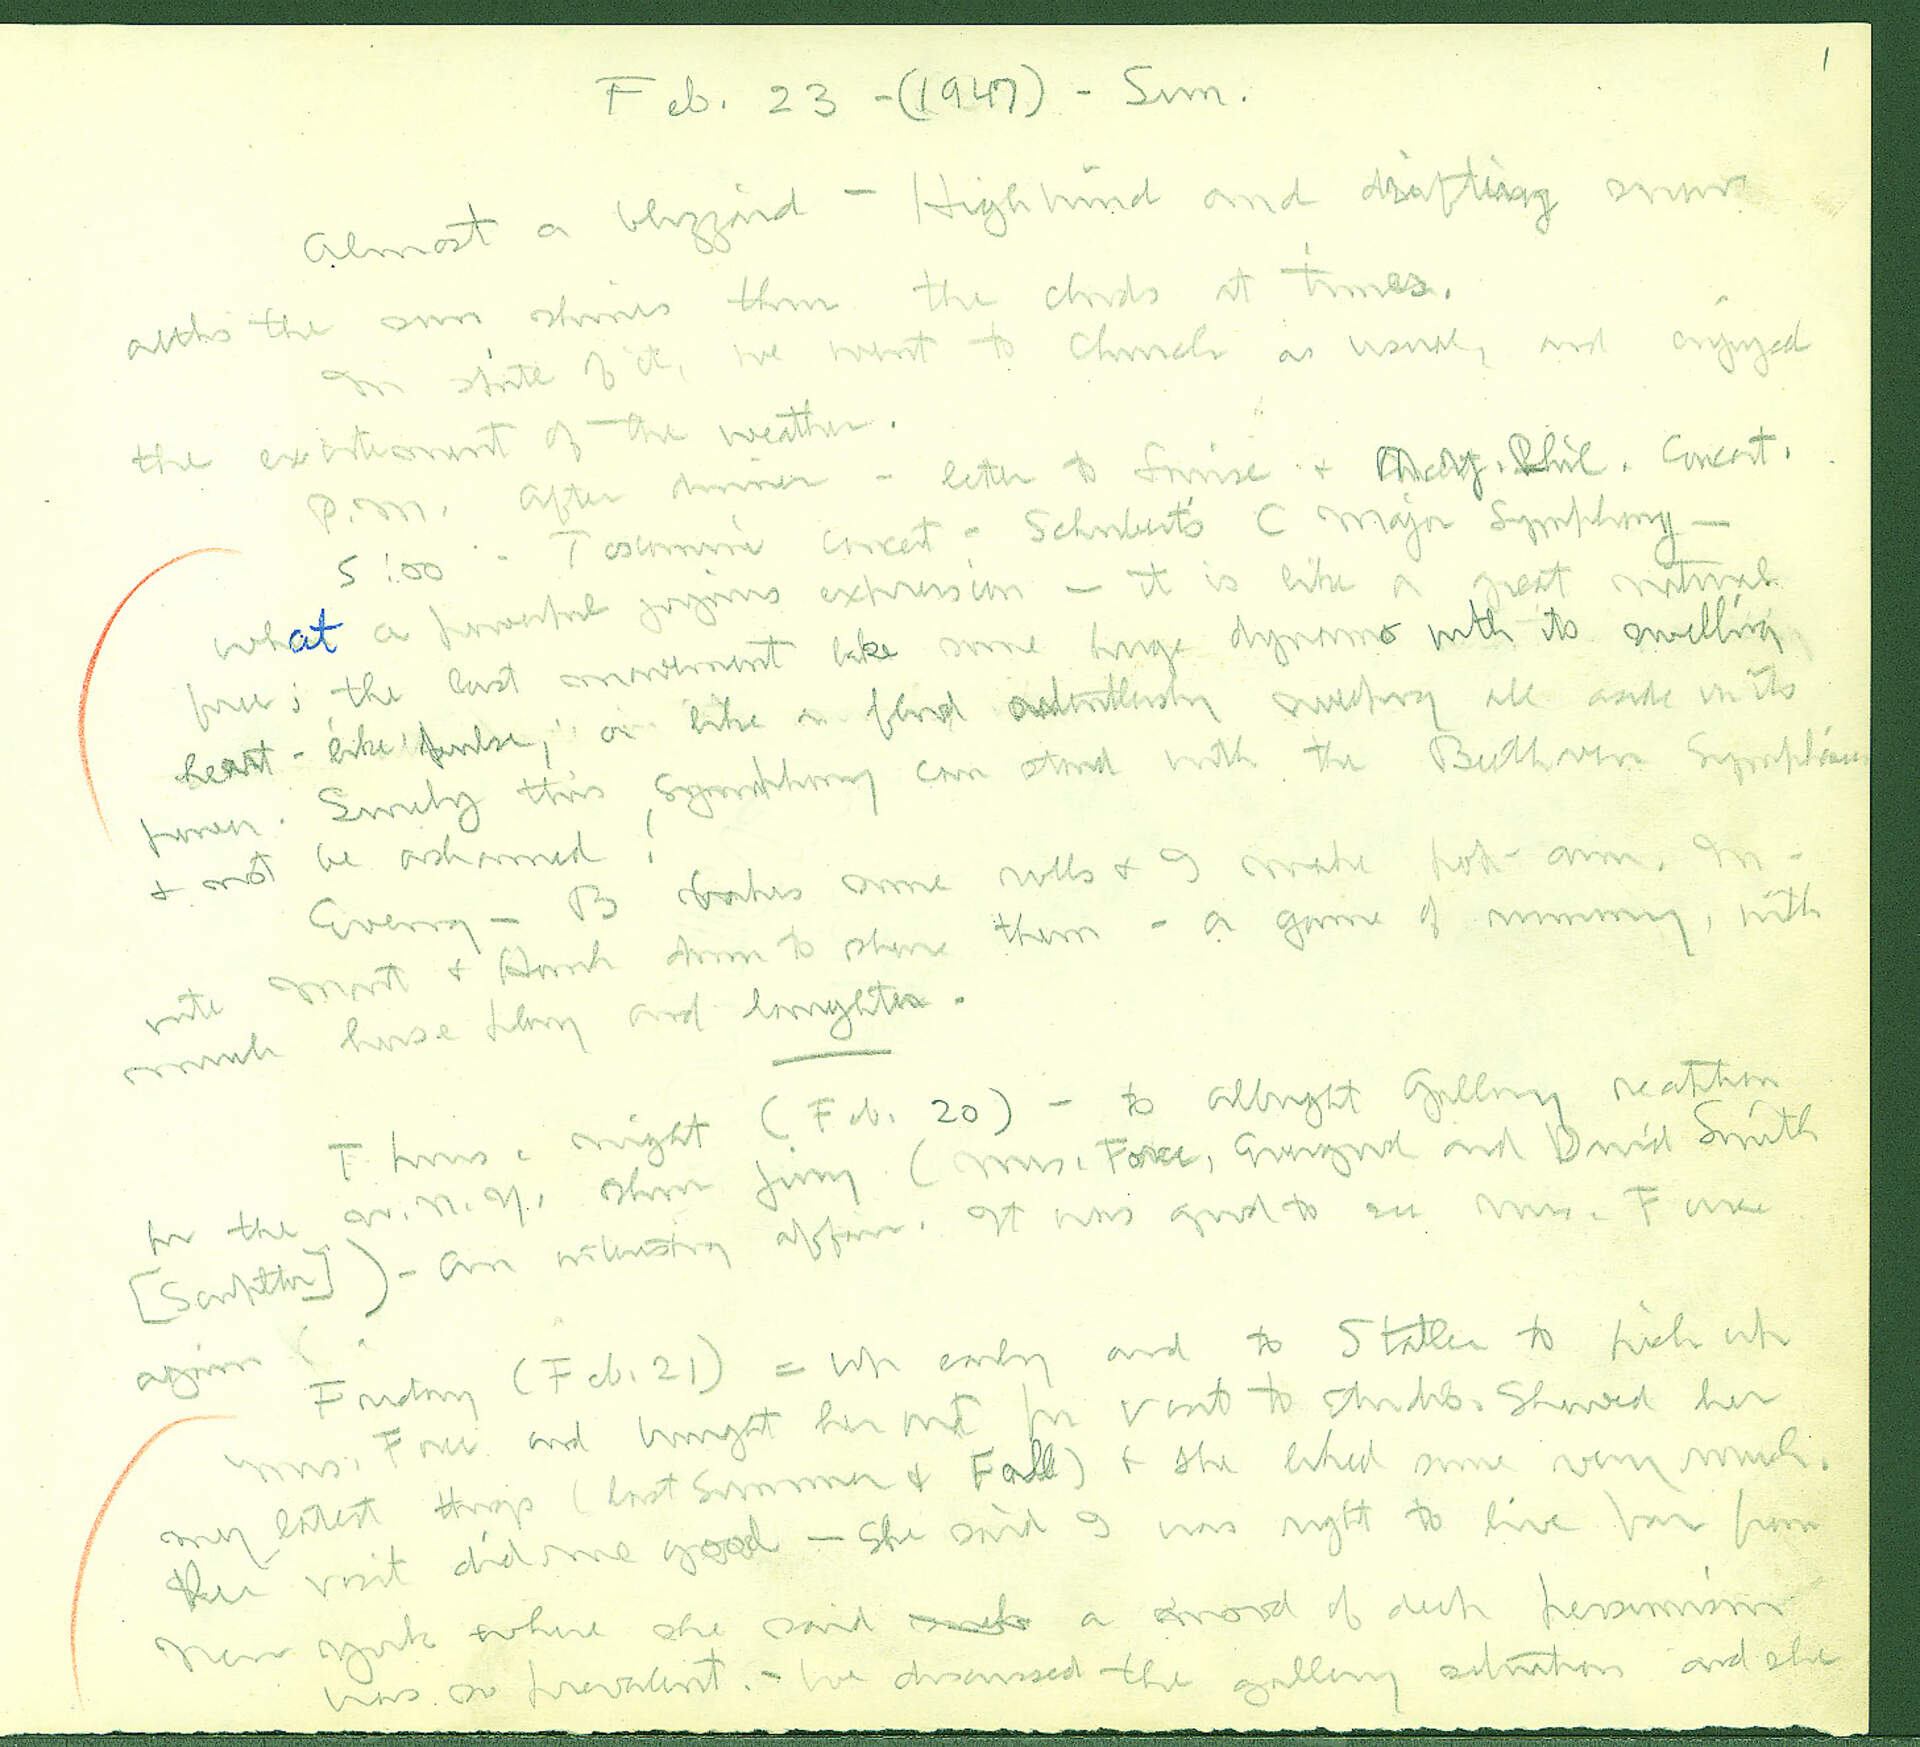 1
Feb. 23 - (1947) - Sun.
Almost a blizzard - High wind and drifting snow
altho the sun shines thru the clouds at times.
In spite of it, we went to Church as usual, and enjoyed
the excitement of the weather.
P.M. After dinner - letter to Louise + N.Y. Phil. Concert.
5:00 - Toscanini concert - Schubert's C Major Symphony -
what a powerful joyous expression - it is like a great natural
force; the last movement like some huge dynamo with its swelling
heart-like pulse, or like a flood relentlessly sweeping all aside in its
power. Surely this Symphony can stand with the Beethoven Symphonies
+ not be ashamed!
Evening - B bakes some rolls + I make hot- In-
vite Mart + down to share them - a game of rummy, with
much horse play and laughter.
Thurs. night (Feb. 20) - to Albright Gallery reception
for the W.N.Y. show jury (Mrs. Force, and David Smith
[Sculptor]) - an interesting affair. It was good to see Mrs. Force
again!
Friday (Feb. 21) = up early and to Statler to pick up
Mrs. Force and brought her out for visit to studio. Showed her
my latest things (last Summer + Fall) + she liked some very much.
Her visit did me good - She said I was right to live far from
New York where she said such a mood of deep pessimism
was so prevalent. - We discussed the gallery situation and she